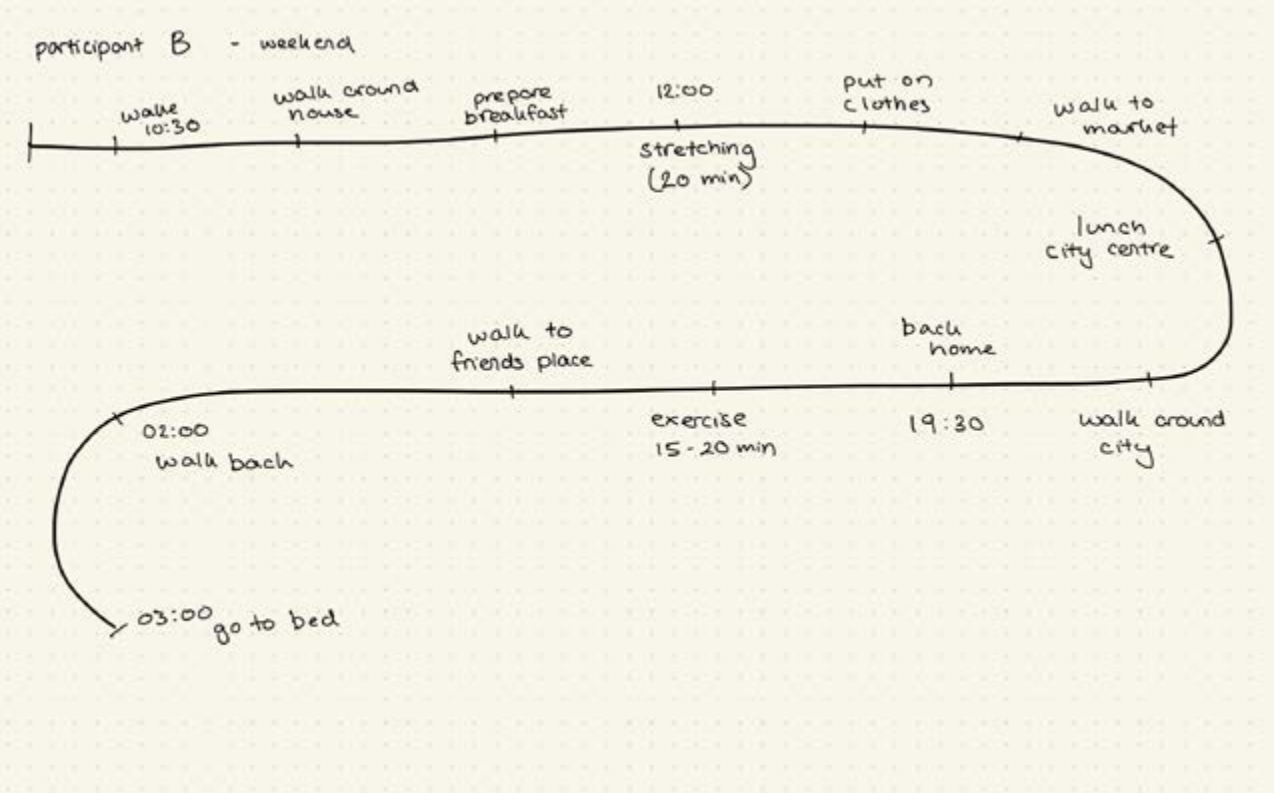 participant B - weekend
wake
10:30
walk around
house
prepare
breakfast
12:00
stretching
(20 min)
put on
clothes
walk to
market
lunch
city centre
walk around
city
back
home
19:30
exercise
15-20 min
walk to
friends place
02:00
walk back
03:00 go to bed